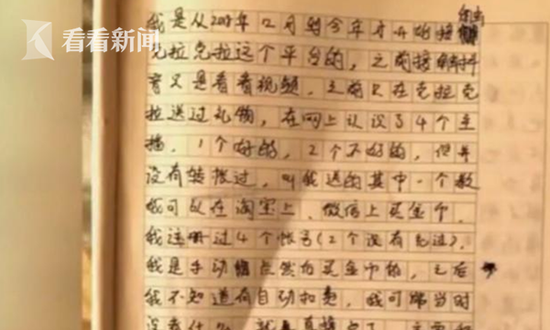 看看新闻
我是从2018年12月到今年才开始接触
克拉克拉这个平台的，之前接触抖
音只是看看视频，之前只在克拉克
拉送过礼物，在网上认识了4个主
播，1个好的，2个不好的，但并
没有转账过，叫我送的其中一个教
我可以在淘宝上、微信上买金币，
我注册过4个帐号(2个没有充过)，
我是手动点然后买金币的，之后
我不知道有自动扣费，我可能当时